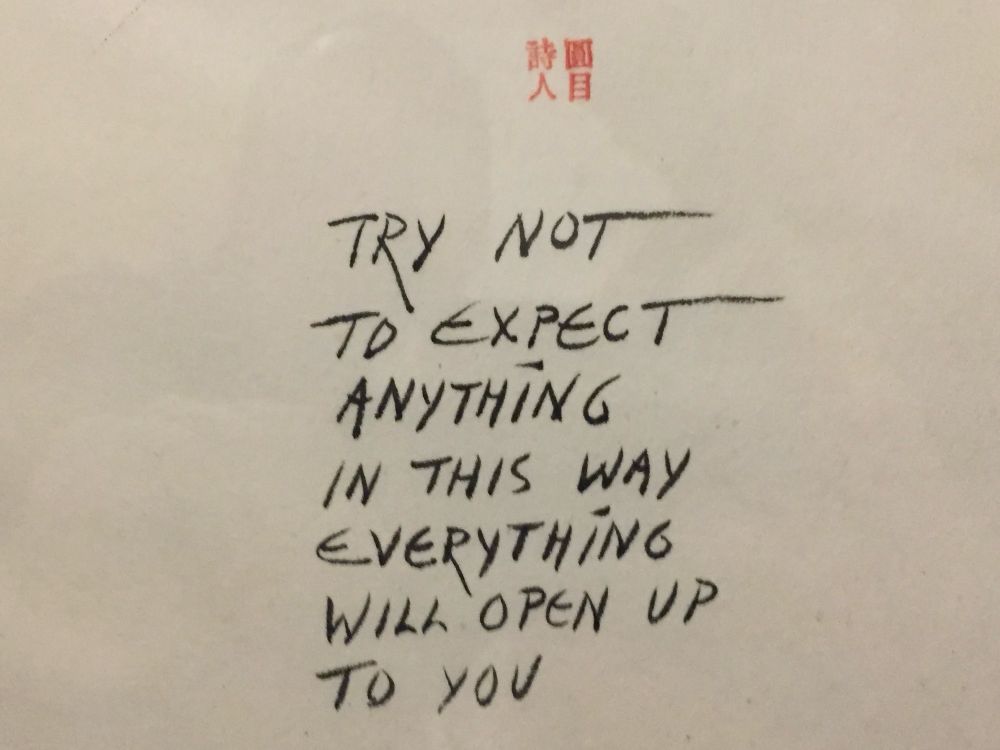 圓目
詩人
TRY NOT
TO EXPECT
ANYTHING
IN THIS WAY
EVERYTHING
WILL OPEN UP
TO YOU